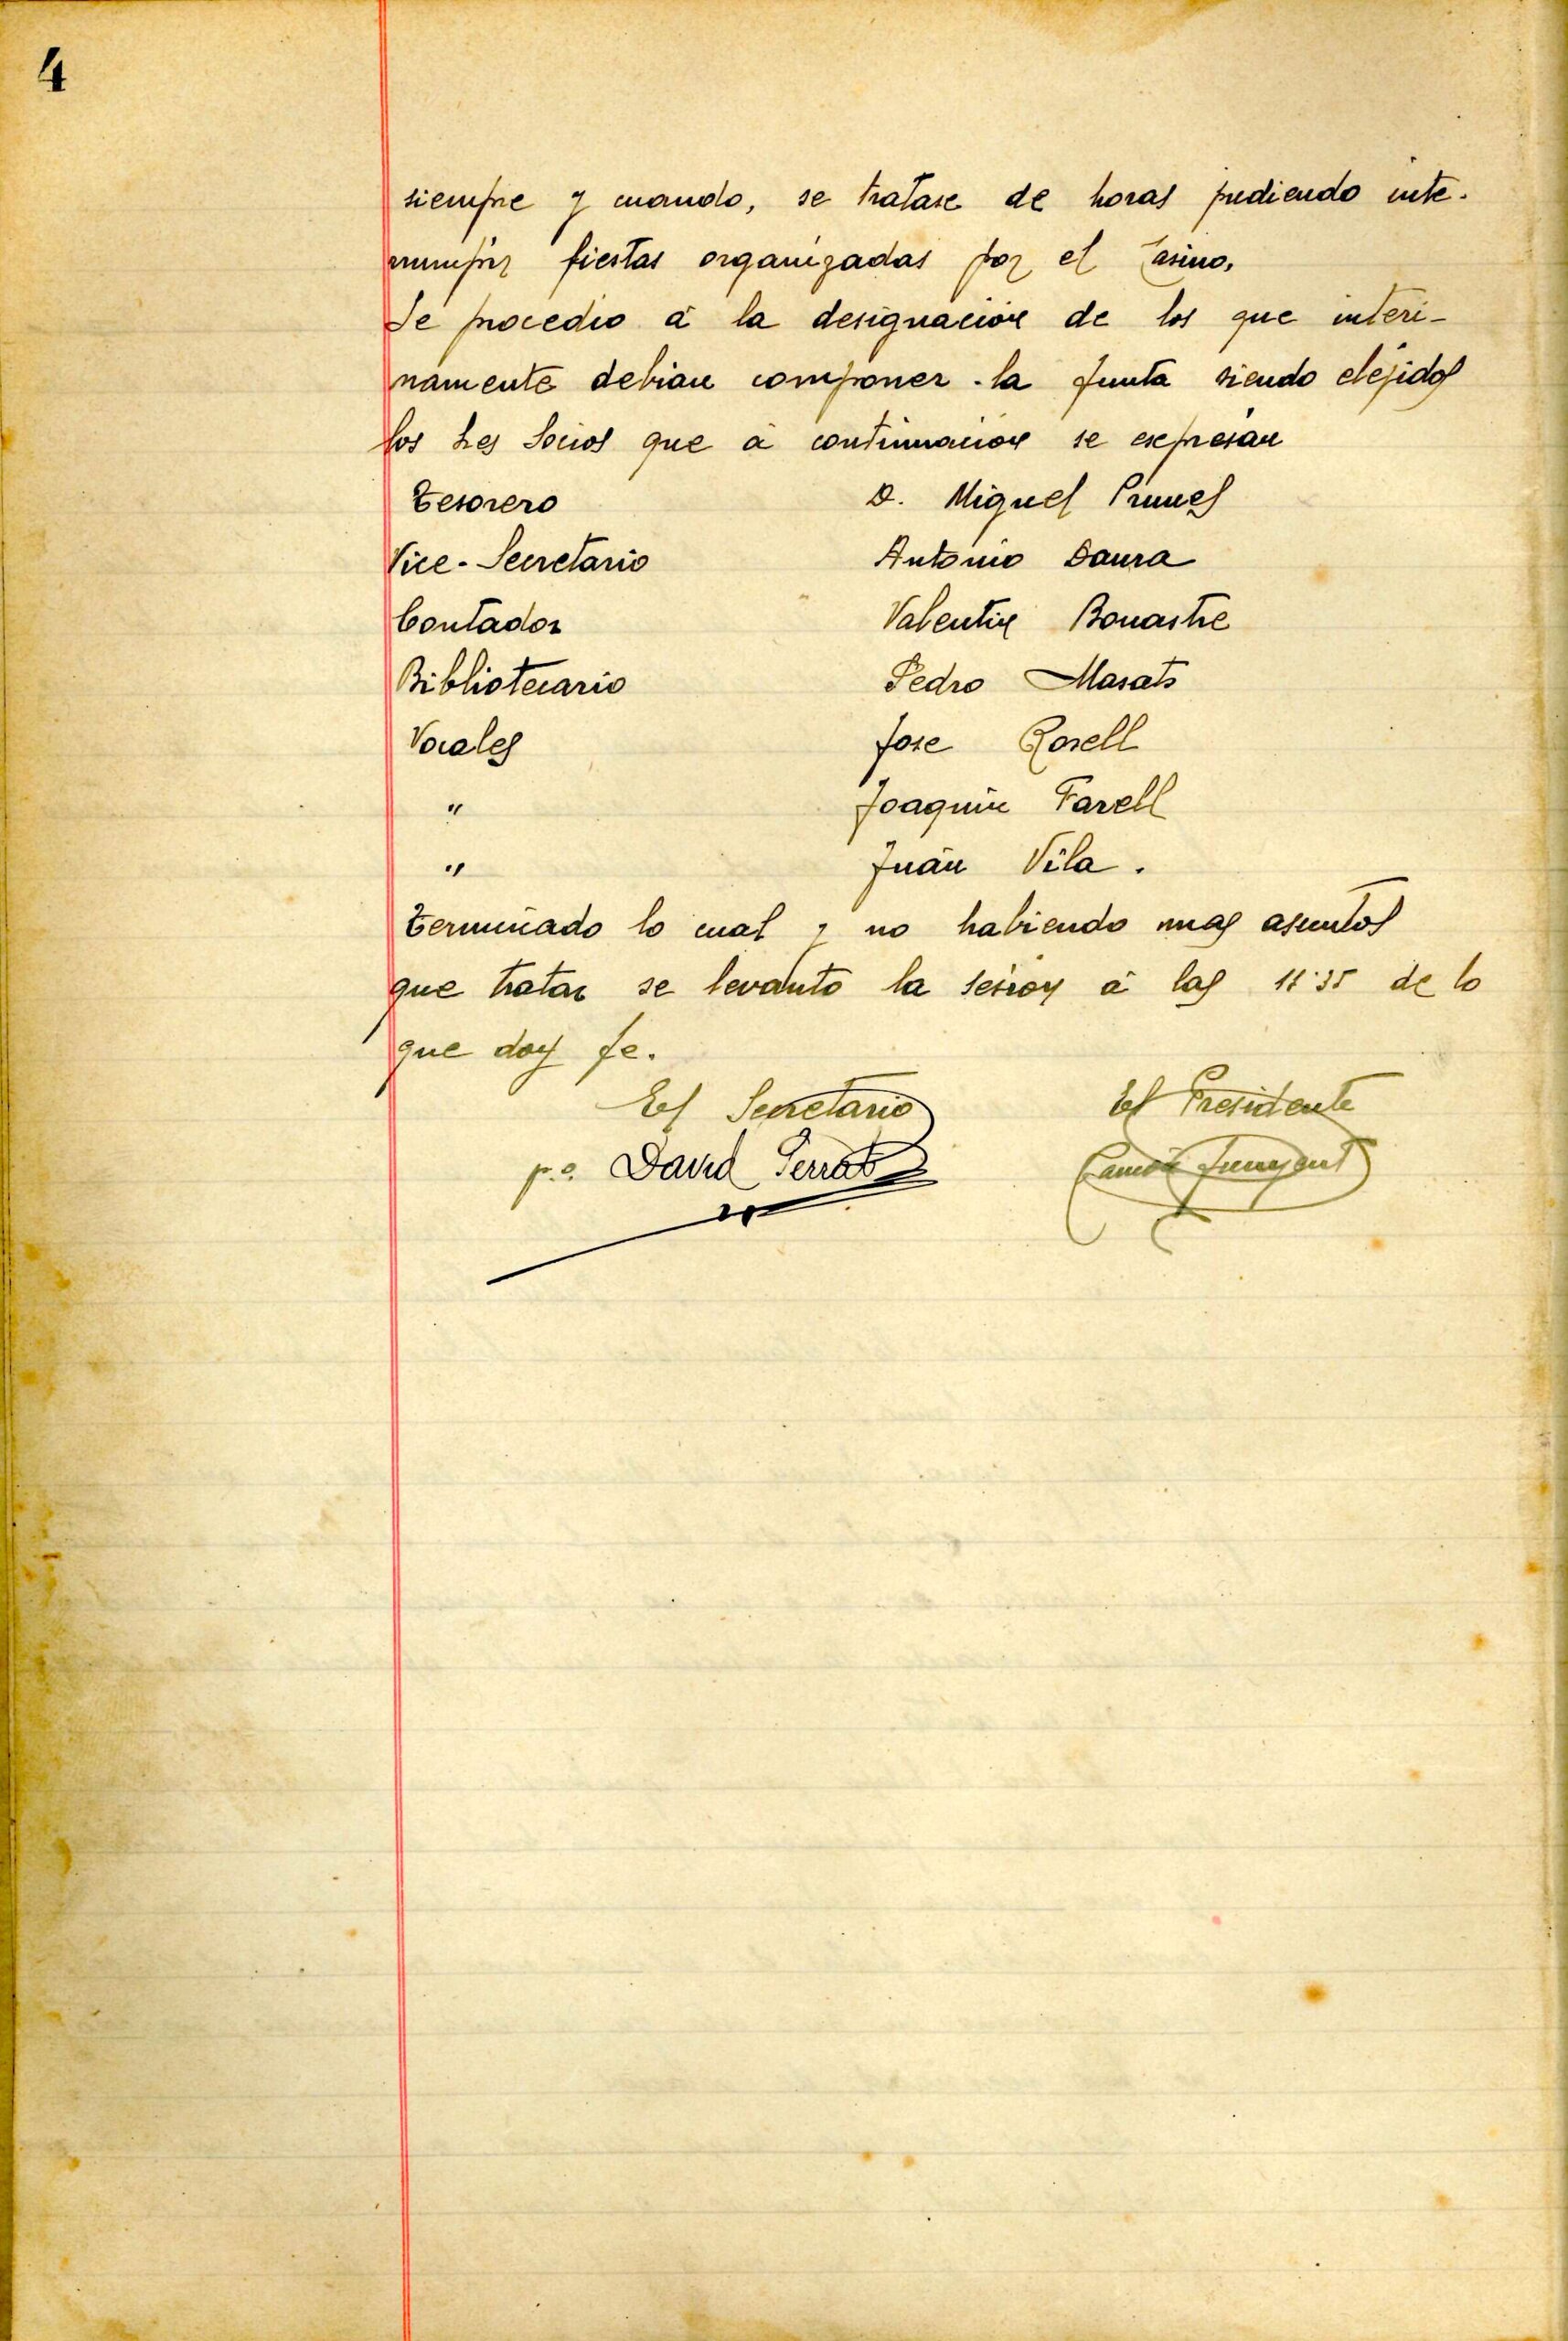 4
siempre y cuando, se tratase de horas pudiendo inte-
rrumpir fiestas organizadas por el Casino.
Se procedio á la designación de los que interi-
namente debian componer la Junta siendo elejidos
los Sres Socios que á continuación se expresan
Tesorero D. Miguel Prunes
Vice-Secretario Antonio Daura
Contador Valentin Bonastre
Bibliotecario Pedro Masats
Vocales Jose Rosell
" Joaquin Farell
" Juan Vila.
Terminado lo cual y no habiendo mas asuntos
que tratar se levanto la sesion á las de lo
que doy fe.
El Secretario El Presidente
p.o. David Serrat Ramón Junyent